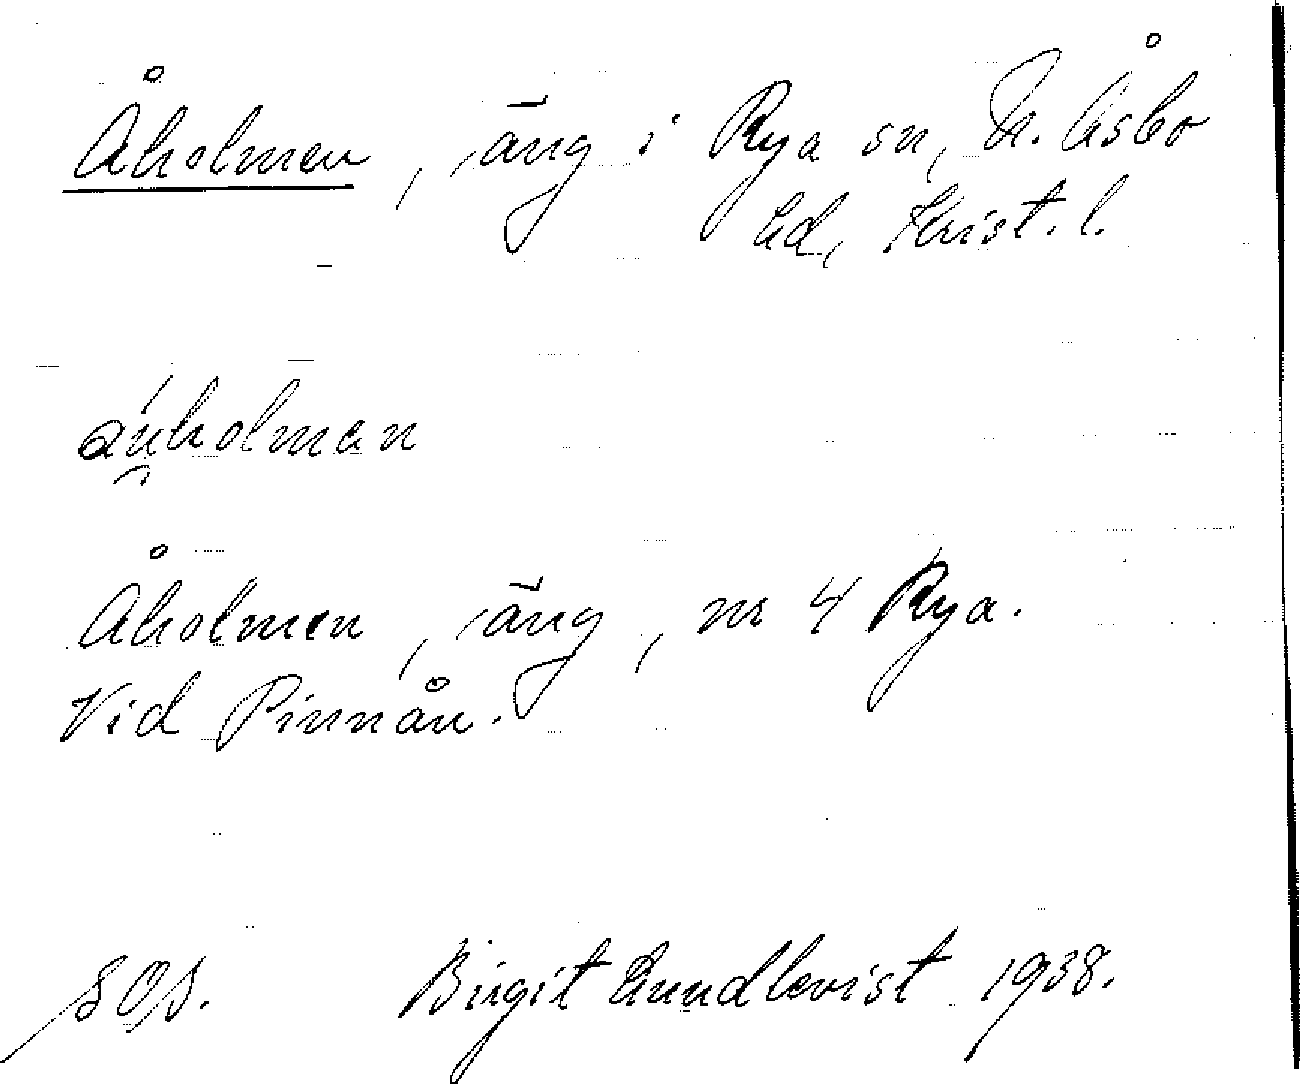 Åholmen, äng i Rya sn, N. Åsbo
hd, Krist. l.
Åholmen, äng, nr 4 Rya.
Vid Pinnån.
SOS. Birgit Lundkvist 1938.